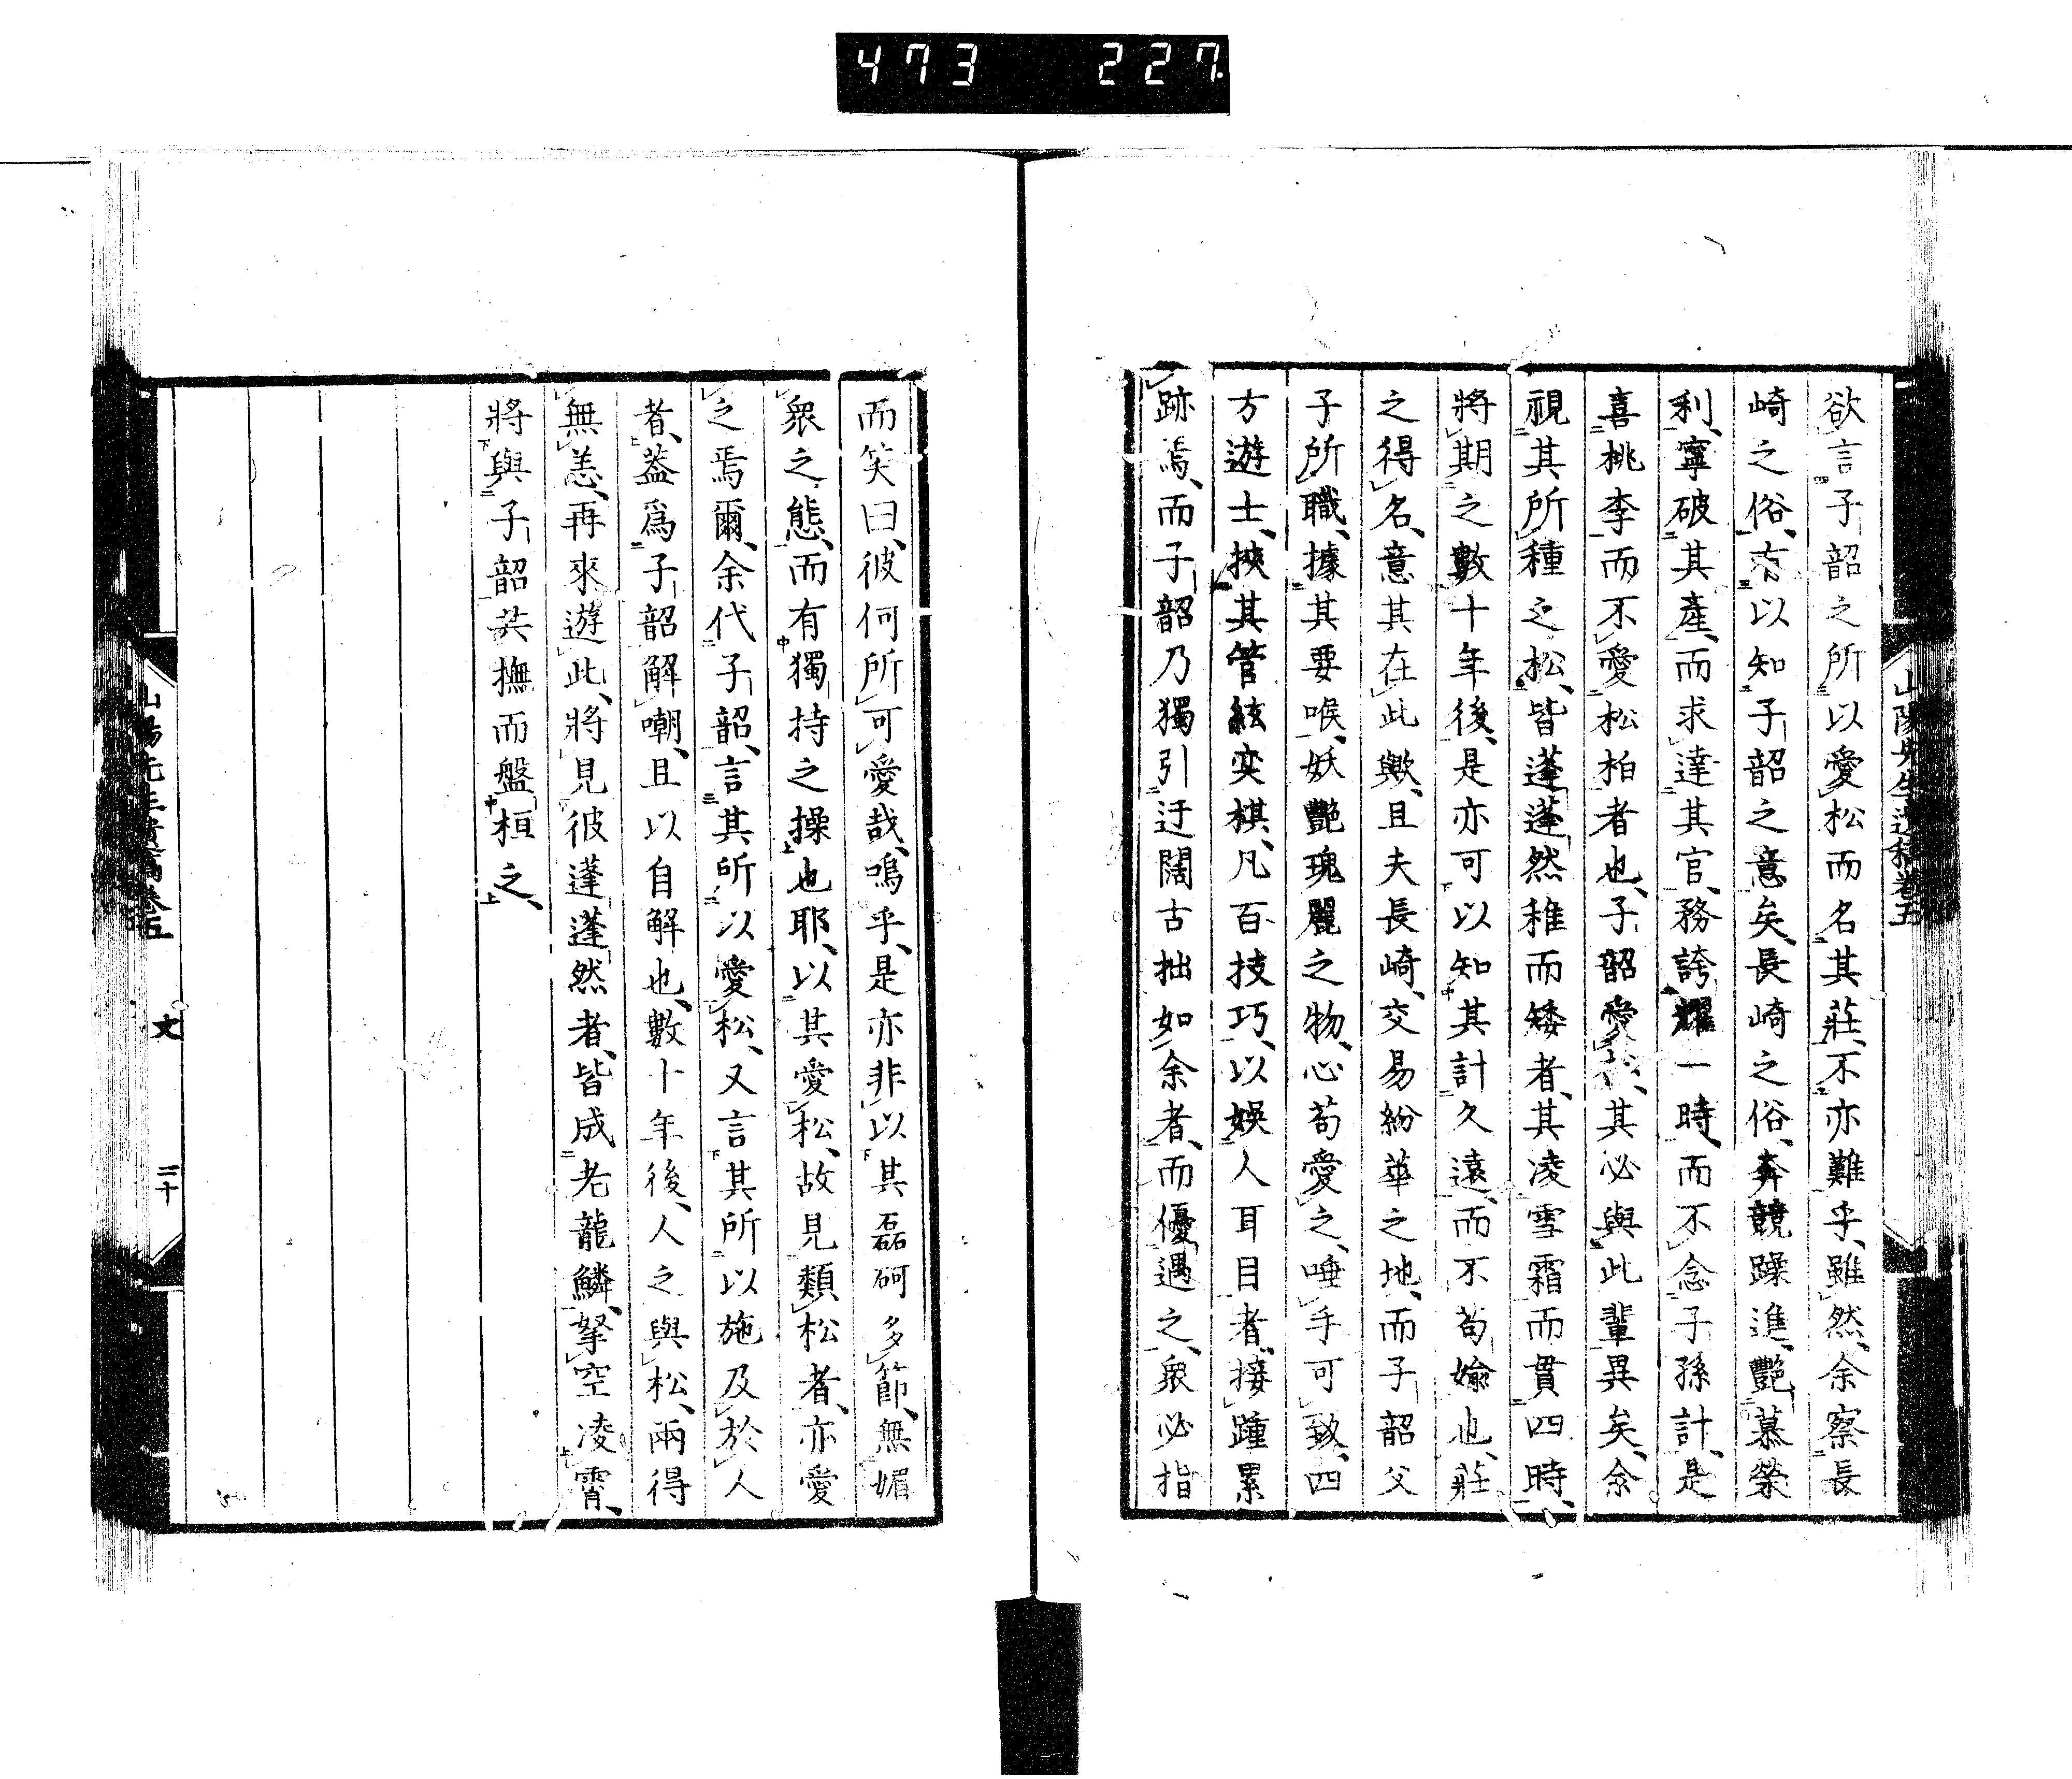 473 227
山陽先生遺稿卷五
欲言子韶之所以愛松而名其莊、不亦難乎、雖然、余察長
崎之俗、有以知子韶之意矣、長崎之俗、奔競躁進、艷慕榮
利、寧破其產、而求達其官、務誇耀一時、而不念子孫計、是
喜桃李而不愛松柏者也、子韶愛松、其必與此輩異矣、余
視其所種之松、皆蓬蓬然稚而矮者、其凌雪霜而貫四時、
將期之數十年後、是亦可以知其計久遠、而不苟媮也、莊
之得名、意其在此歟、且夫長崎、交易紛華之地、而子韶父
子所職、據其要喉、妖艷瑰麗之物、心苟愛之、唾手可致、四
方遊士、挾其管絃奕棋、凡百技巧、以娛人耳目者、接踵累
跡焉、而子韶乃獨引迂闊古拙如余者、而優遇之、眾必指
而笑曰、彼何所可愛哉、嗚乎、是亦非以其磊砢多節、無媚
眾之態、而有獨持之操也耶、以其愛松、故見類松者、亦愛
之焉爾、余代子韶、言其所以愛松、又言其所以施及於人
者、蓋爲子韶解嘲、且以自解也、數十年後、人之與松、兩得
無恙、再來遊此、將見彼蓬蓬然者、皆成老龍鱗、拏空凌霄、
將與子韶共撫而盤桓之、
山陽先生遺稿卷五 文 三十